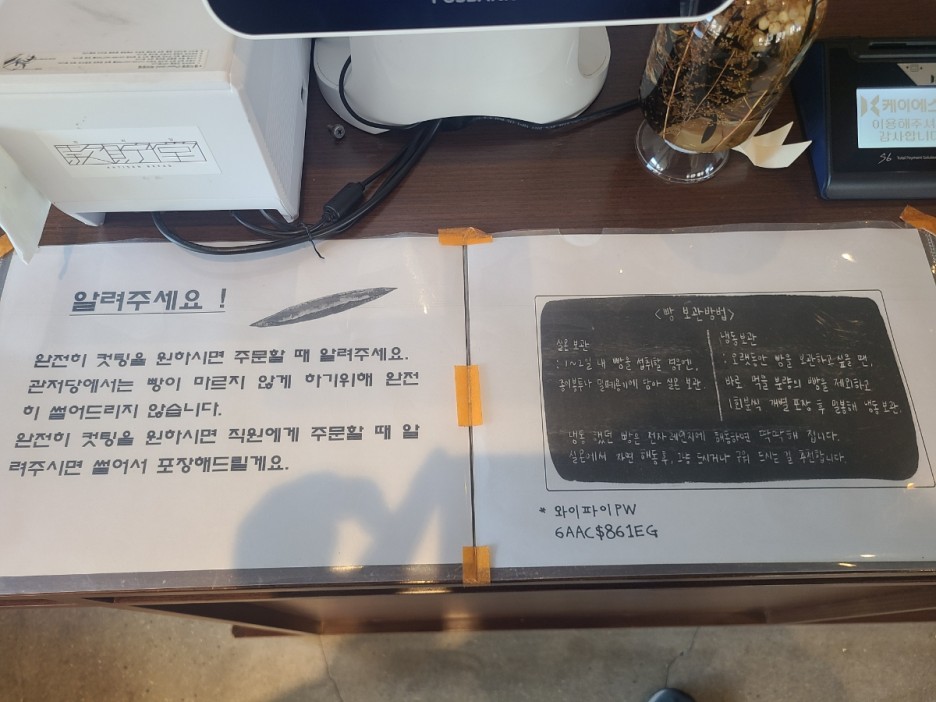 케이에스
이용해주셔
감사합니다
S6 Total Payment Solution
알려주세요 !
완전히 컷팅을 원하시면 주문할 때 알려주세요.
관저당에서는 빵이 마르지 않게 하기위해 완전
히 썰어드리지 않습니다.
완전히 컷팅을 원하시면 직원에게 주문할 때 알
려주시면 썰어서 포장해드릴게요.
<빵 보관방법>
실온 보관
: 1~2일 내 빵을 섭취할 경우엔,
종이봉투나 밀폐용기에 담아 실온 보관.
냉동 보관
: 오랫동안 빵을 보관하고 싶을 땐,
바로 먹을 분량의 빵을 제외하고
1회분씩 개별 포장 후 밀봉해 냉동 보관.
냉동 했던 빵은 전자레인지에 해동하면 딱딱해 집니다.
실온에서 자연 해동 후, 그냥 드시거나 구워 드시는 걸 추천합니다.
* 와이파이PW
6AAC$861EG